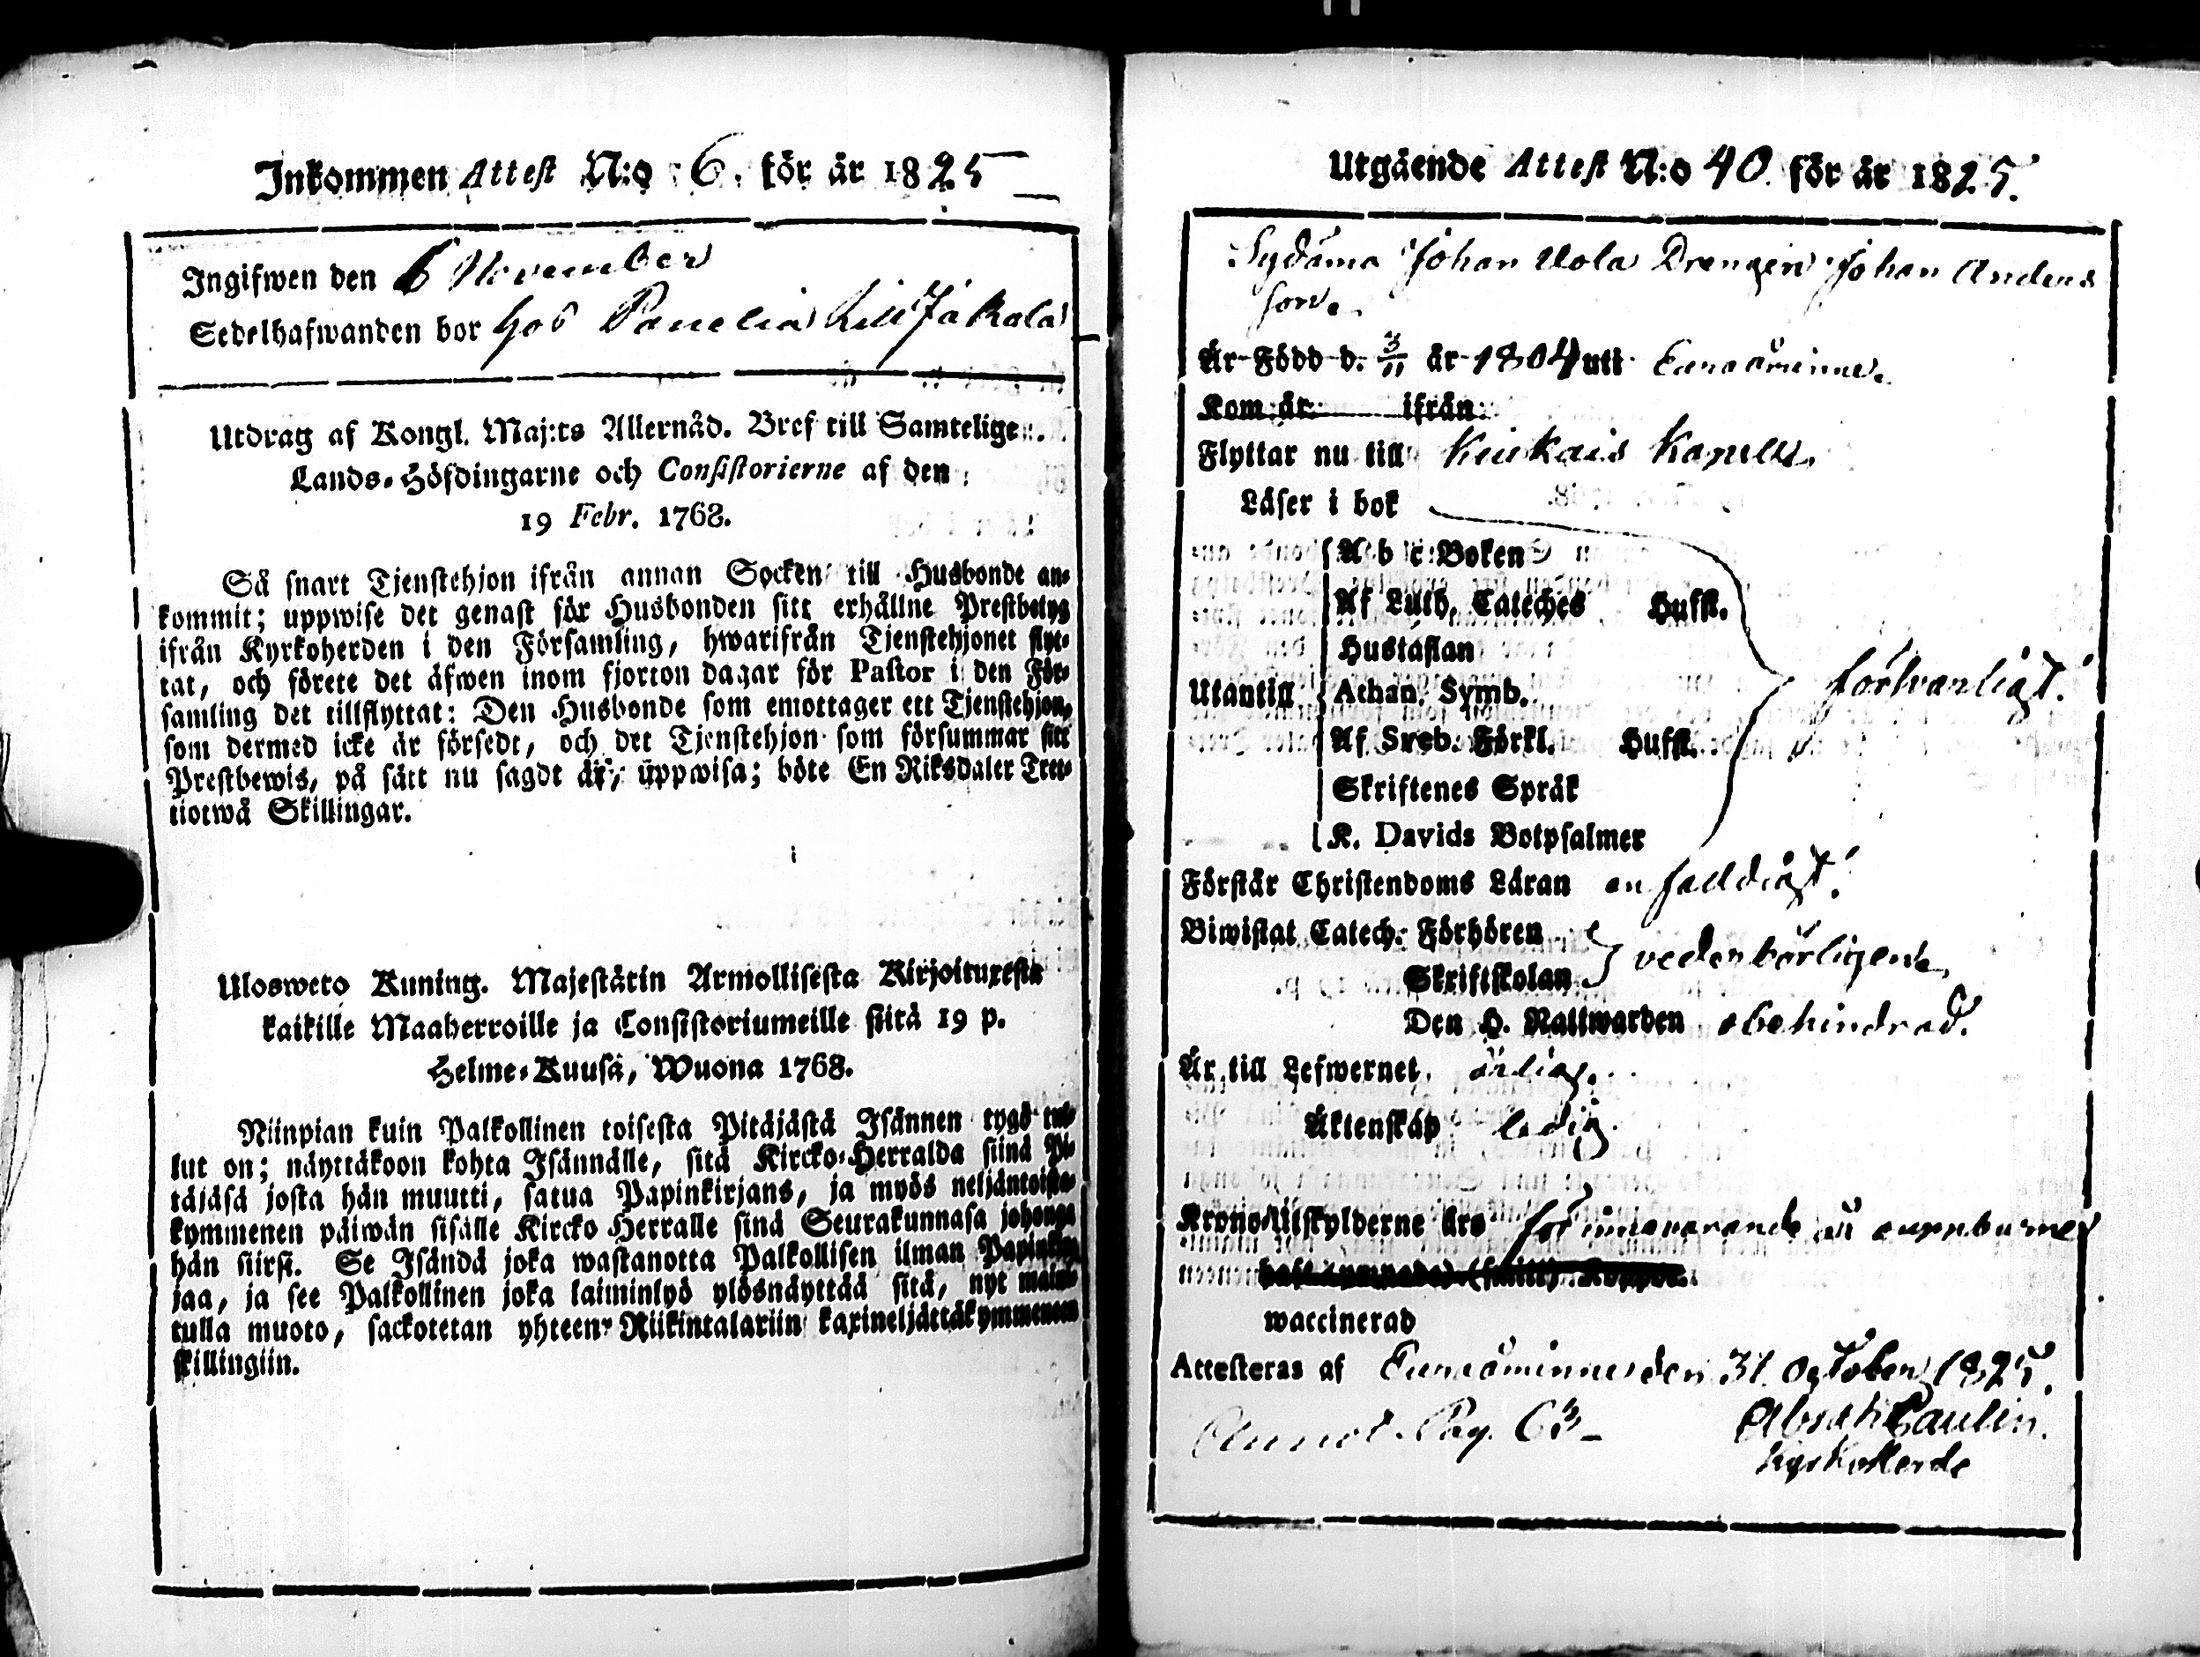 Inkommen Attest N:o 6. för år 1825
Ingifwen den 6 November
Sedelhafwanden bor hos Panelia Lill Jäkala
Utdrag af Kongl. Maj:ts Allernåd. Bref till Samtelige
Lands-Höfdingarne och Consistorierne af den
19 Febr. 1768.
Så snart Tjenstehjon ifrån annan Socken till Husbonde an-
kommit; uppwise det genast för Husbonden sitt erhållne Prestbetyg
ifrån Kyrkoherden i den Församling, hwarifrån Tjenstehjonet flyt-
tat, och förete det äfwen inom fjorton dagar för Pastor i den För-
samling det tillflyttat: Den Husbonde som emottager ett Tjenstehjon,
som dermed icke är försedt, och det Tjenstehjon som försummar sitt
Prestbewis, på sätt nu sagdt är, uppwisa; böte En Riksdaler Tret-
tiotwå Skillingar.
Ulosweto Kuning. Majestätin Armollisesta Kirjoituxesta
kaikille Maaherroille ja Consistoriumeille siitä 19 p.
Helme-Kuusa, Wuona 1768.
Niinpian kuin Palkollinen toisesta Pitäjästä Isännen tygö tul-
lut on; näyttäkoon kohta Isännälle, sitä Kircko-Herralda siinä Pi-
täjäsä josta hän muutti, satua Papinkirjans, ja myös neljäntoista-
kymmenen päiwän sisälle Kircko Herralle sinä Seurakunnasa johonga
hän siirsi. Se Isändä joka wastanotta Palkollisen ilman Papinkir-
jaa, ja see Palkollinen joka laiminlyö ylösnäyttää sitä, nyt mainit-
tulla muoto, sackotetan yhteen Riikintalariin kaxineljättäkymmeneen
skillingiin.
Utgående Attest N:o 40. för år 1825.
Sydämo Johan Uola Drengen Johan Anders
son
Är Född d. 3/11 år 1804 uti Euraåminne
Kom år ifrån
Flyttar nu till Kiukais Kapell.
Läser i bok
A b c Boken
Af Luth. Cateches Hufst.
Hustaflan
Utantill Athan. Symb. försvarligt.
Af Sweb. Förkl. Hufst.
Skriftenes Språk
K. Davids Botpsalmer
Förstår Christendoms Läran enfaldigt.
Biwistat Catech. Förhören vederbörligen
Skriftskolan
Den H. Nattwarden obehindrad.
Är till Lefwernet ärlig.
Äktenskap ledig.
Krono-Utskylderne äro för innevarande år uppburne
waccinerad
Attesteras af Euraåminne den 31 October 1825.
Annot. Pag. 63 Absah Paulin.
Kyrkoherde